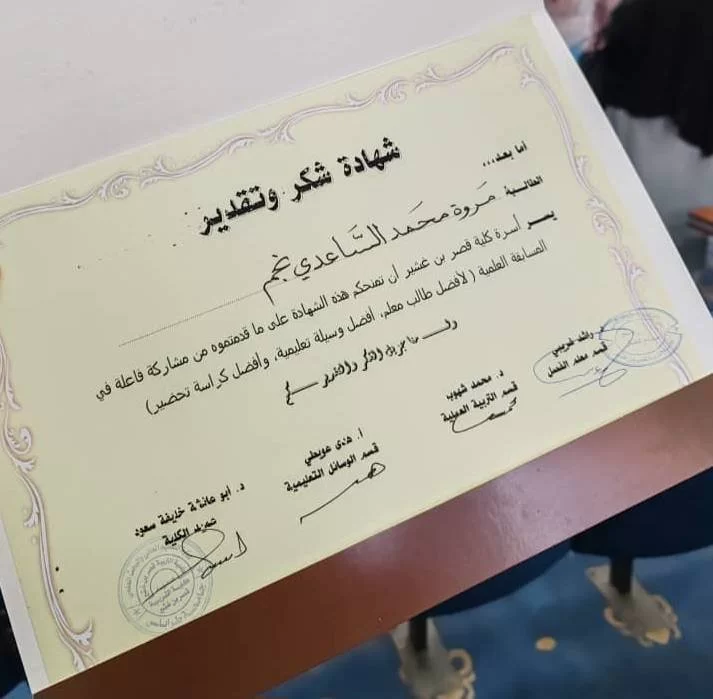 شهادة شكر وتقدير
أما بعد...
الطالبة: مَروة محَمد السَّاعدي نجم
يسر أسرة كلية قصر بن غشير أن تمنحكم هذه الشهادة على ما قدمتموه من مشاركة فاعلة في
المسابقة العلمية (لأفضل طالب معلم، أفضل وسيلة تعليمية، وأفضل كراسة تحضير)
ولكم منا جزيل الشكر والتقدير
قسم معلم الفصل
د. محمد شهوب
قسم التربية العملية
أ. هدى عويطي
قسم الوسائل التعليمية
د. أبو عائشة خليفة سعود
عميد الكلية